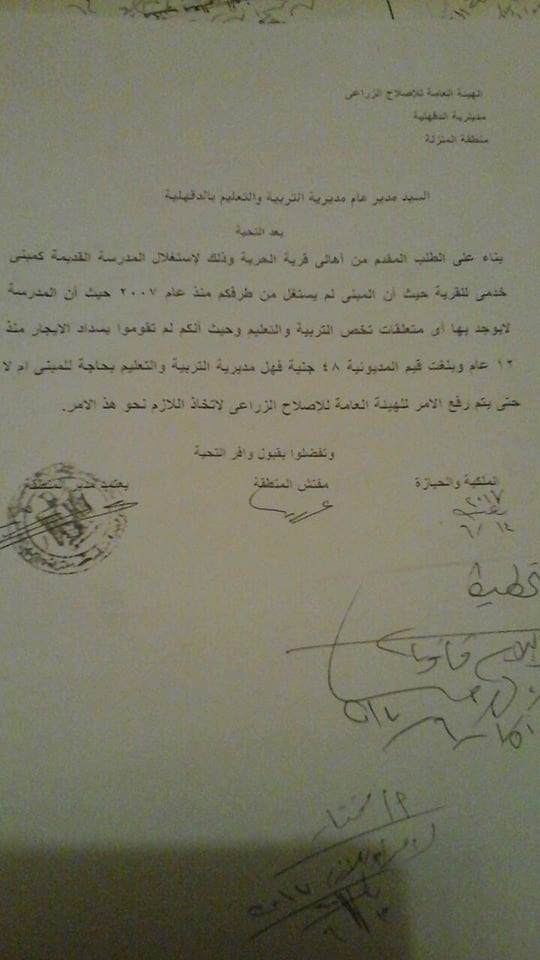 الهيئة العامة للإصلاح الزراعى
مديرية الدقهلية
منطقة المنزلة
السيد مدير عام مديرية التربية والتعليم بالدقهلية
بعد التحية
بناء على الطلب المقدم من أهالى قرية الحرية وذلك لإستغلال المدرسة القديمة كمبنى
خدمى للقرية حيث أن المبنى لم يستغل من طرفكم منذ عام ٢٠٠٧ حيث أن المدرسة
لايوجد بها أى متعلقات تخص التربية والتعليم وحيث أنكم لم تقوموا بسداد الايجار منذ
١٢ عام وبلغت قيم المديونية ٤٨ جنية فهل مديرية التربية والتعليم بحاجة للمبنى ام لا
حتى يتم رفع الامر للهيئة العامة للإصلاح الزراعى لاتخاذ اللازم نحو هذ الامر.
وتفضلوا بقبول وافر التحية
الملكية والحيازة مفتش المنطقة يعتمد مدير المنطقة
٢٠١٧
٦/١٤